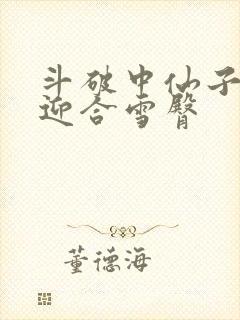 斗破中仙子
迎合雪臀
董德海